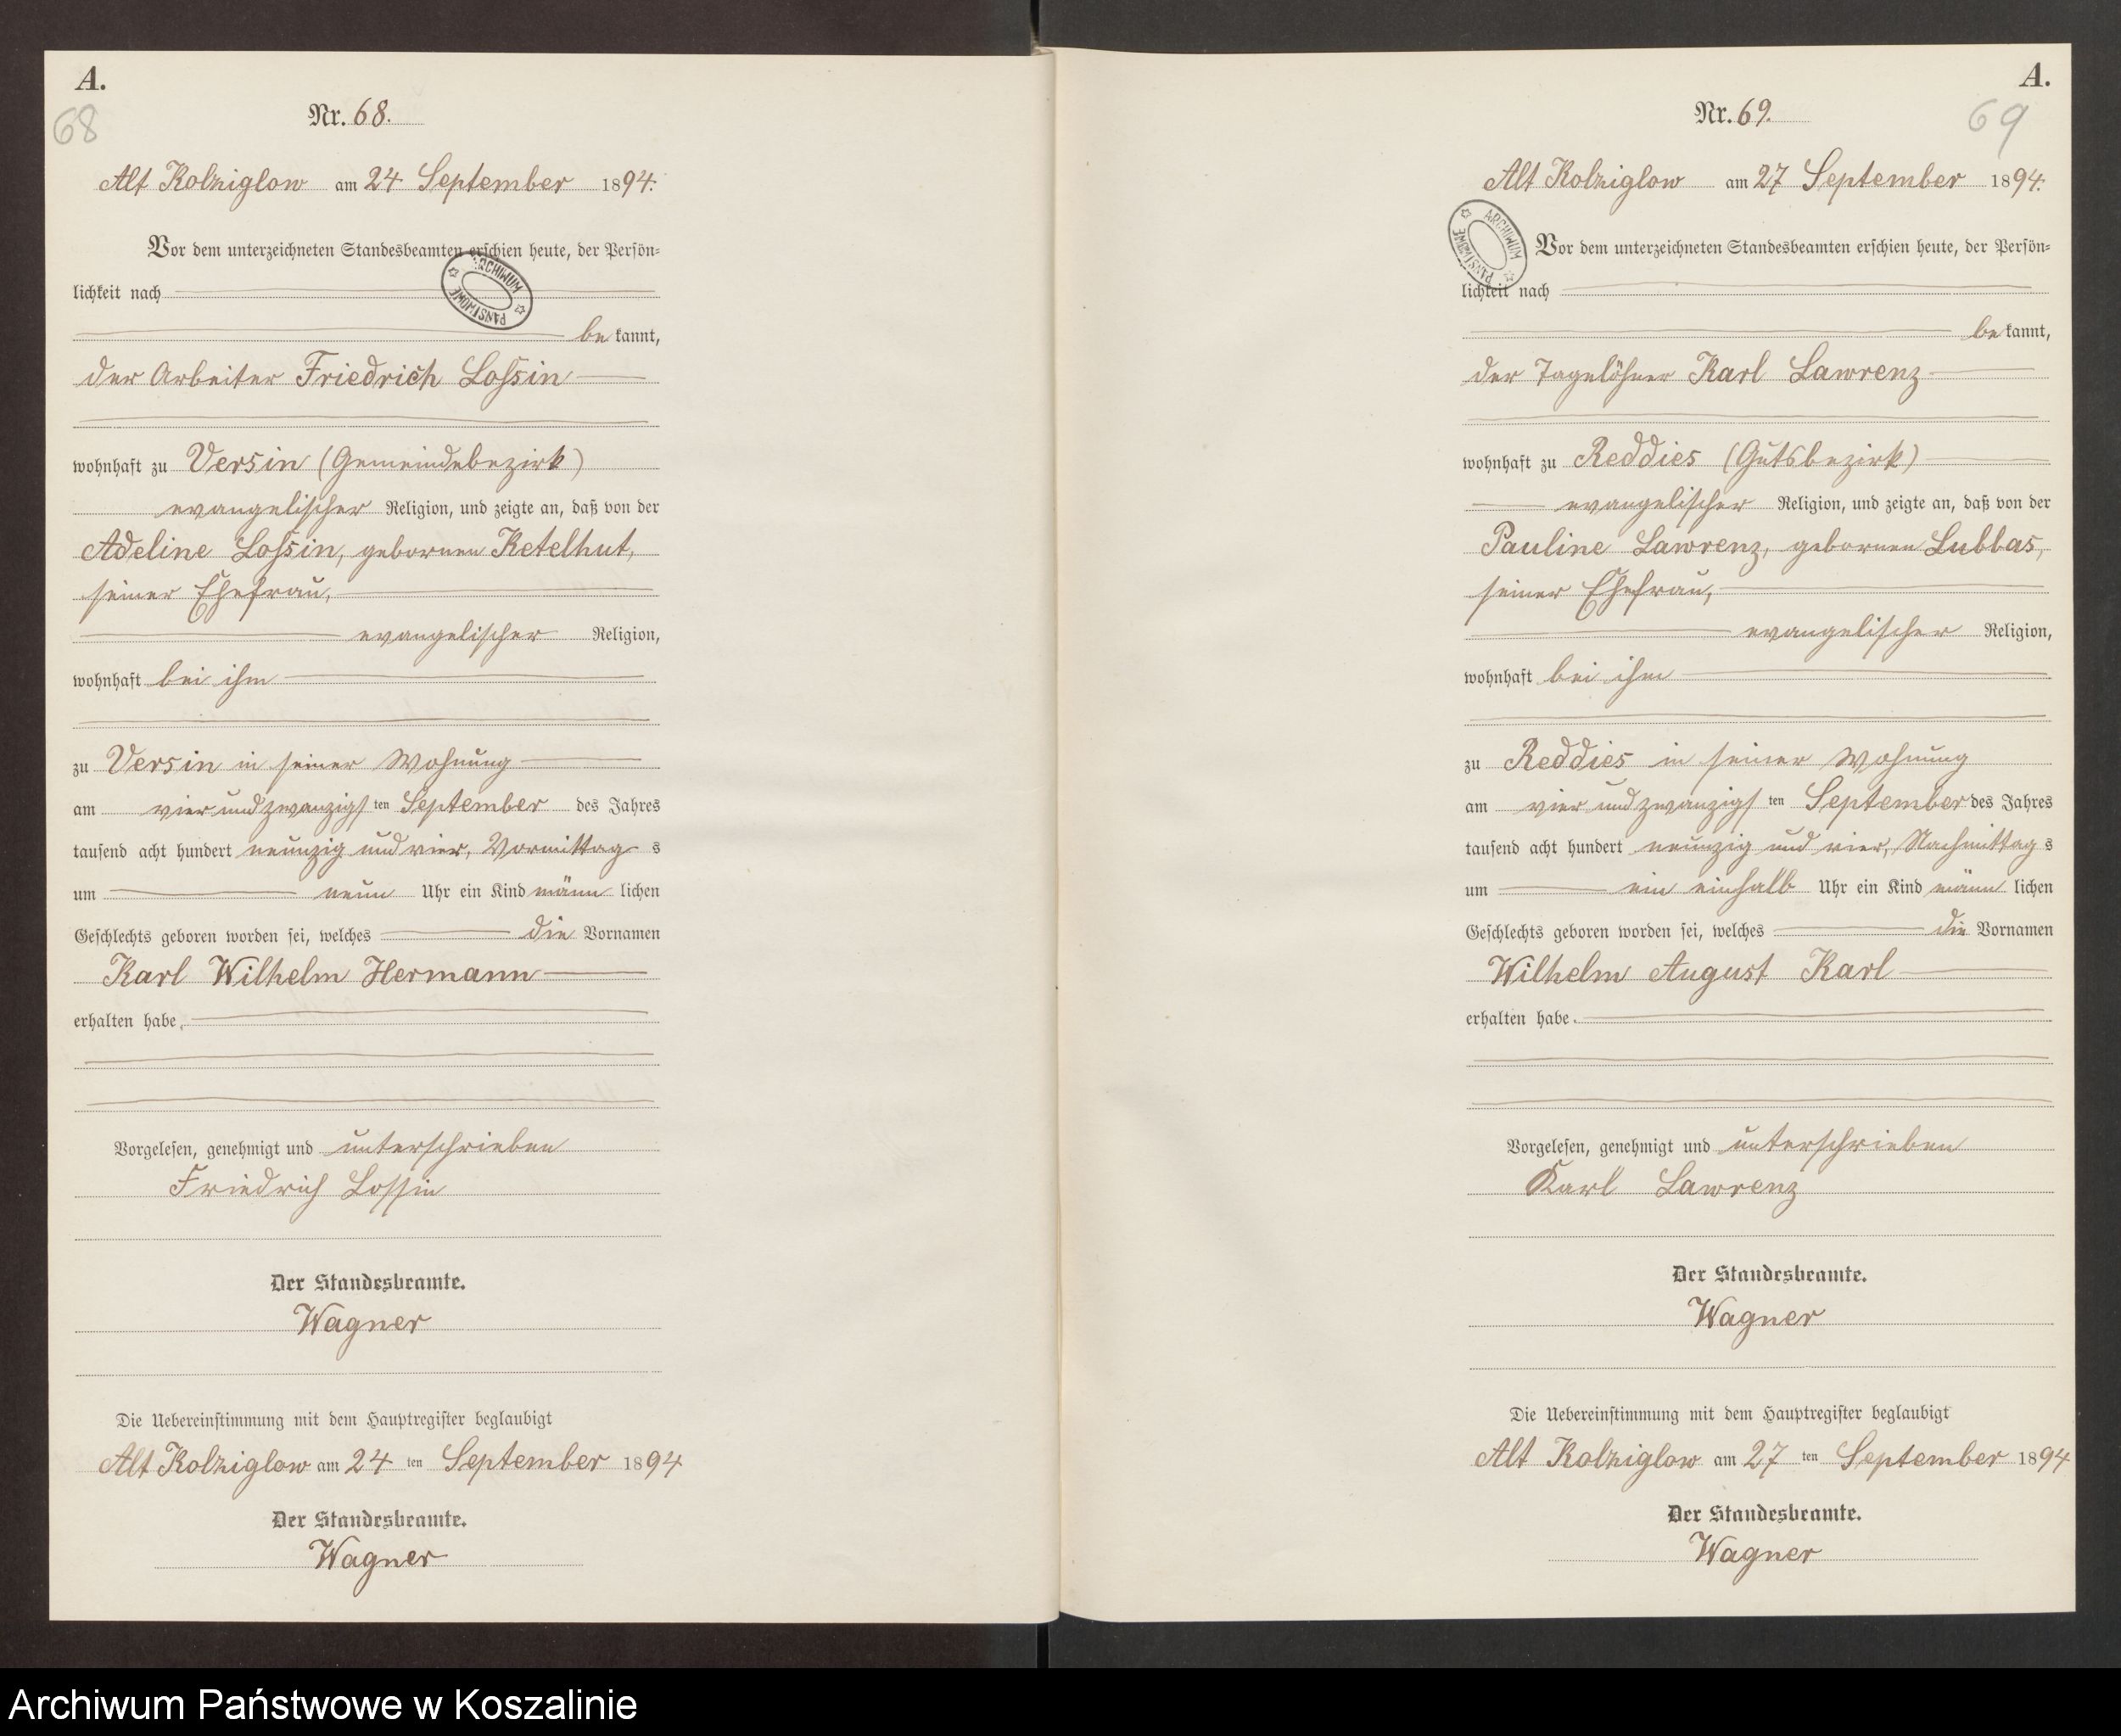 A.
68
Nr. 68.
Alt Kolziglow am 24 September 1894.
Vor dem unterzeichneten Standesbeamten erschien heute, der Persön=
lichkeit nach
ARCHIWUM PAŃSTWOWE
be kannt,
der Arbeiter Friedrich Lossin
wohnhaft zu Versin (Gemeindebezirk)
evangelischer Religion, und zeigte an, daß von der
Adeline Lossin, gebornen Ketelhut,
seiner Ehefrau,
evangelischer Religion,
wohnhaft bei ihm
zu Versin in seiner Wohnung
am vier und zwanzigs ten September des Jahres
tausend acht hundert neunzig und vier, Vormittag s
um neun Uhr ein Kind männ lichen
Geschlechts geboren worden sei, welches die Vornamen
Karl Wilhelm Hermann
erhalten habe.
Vorgelesen, genehmigt und unterschrieben
Friedrich Lossin
Der Standesbeamte.
Wagner
Die Uebereinstimmung mit dem Hauptregister beglaubigt
Alt Kolziglow am 24 ten September 1894
Der Standesbeamte.
Wagner
A.
Nr. 69.
69
Alt Kolziglow am 27 September 1894.
ARCHIWUM PAŃSTWOWE
Vor dem unterzeichneten Standesbeamten erschien heute, der Persön=
lichkeit nach
be kannt,
der Tagelöhner Karl Lawrenz
wohnhaft zu Reddies (Gutsbezirk)
evangelischer Religion, und zeigte an, daß von der
Pauline Lawrenz, gebornen Lubbas,
seiner Ehefrau,
evangelischer Religion,
wohnhaft bei ihm
zu Reddies in seiner Wohnung
am vier und zwanzigs ten September des Jahres
tausend acht hundert neunzig und vier, Nachmittag s
um ein einhalb Uhr ein Kind männ lichen
Geschlechts geboren worden sei, welches die Vornamen
Wilhelm August Karl
erhalten habe.
Vorgelesen, genehmigt und unterschrieben
Karl Lawrenz
Der Standesbeamte.
Wagner
Die Uebereinstimmung mit dem Hauptregister beglaubigt
Alt Kolziglow am 27 ten September 1894
Der Standesbeamte.
Wagner
Archiwum Państwowe w Koszalinie